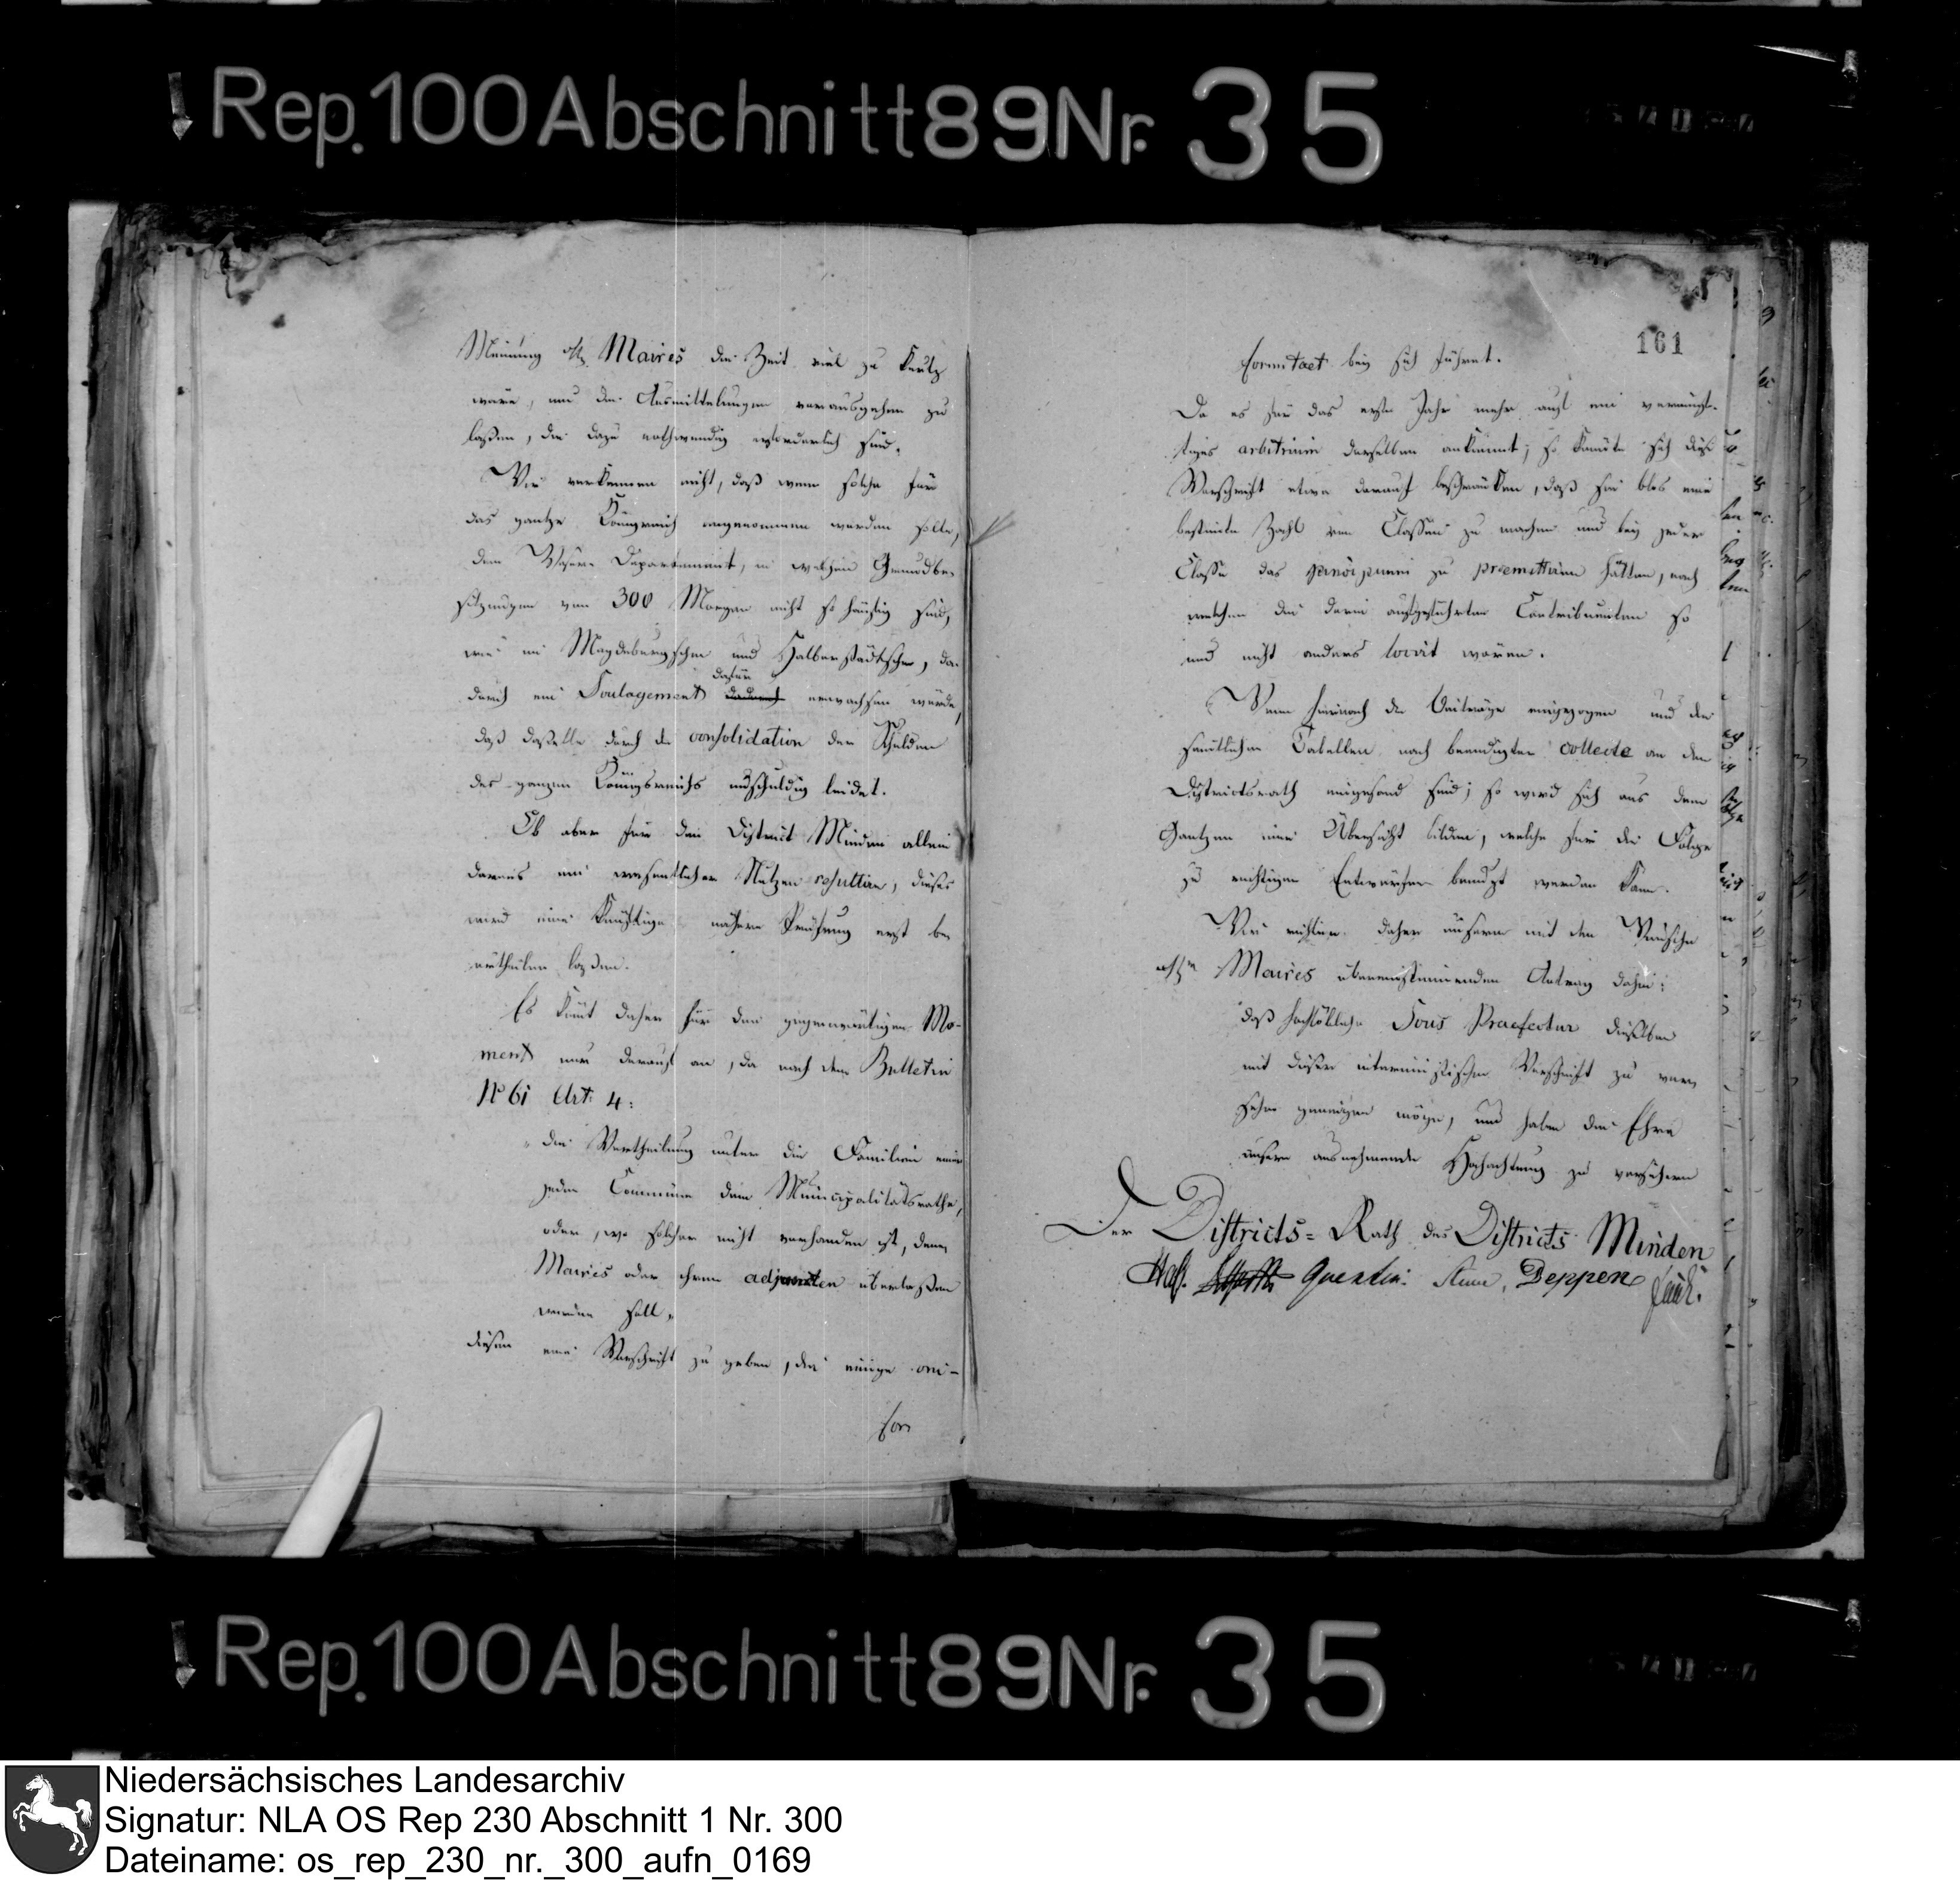 Rep. 100 Abschnitt 89 Nr. 35
Meinung Maires die Zeit viel zu kurtz
wäre, um die Ausmittelungen vorausgehen zu
laßen, die dazu nothwendig erforderlich sind.
Wir verkennen nicht, daß wenn solche für
das gantze Königreich angenommen werden sollte,
dem Weser Departement, in welchen Grundbe-
sitzungen von 300 Morgen nicht so häufig sind,
wie im Magdeburgschen und Halberstädtschen, da-
durch ein Soulagement dafür erwachsen würde,
daß daßelbe durch die consolidation der Schulden
des ganzen Königreichs unschuldig leidet.
Ob aber für den District Minden allein
daraus ein wesentlicher Nutzen resultire, dieses
wird eine künftige nähere Prüfung erst be-
urtheilen laßen.
Es kömt daher für den gegenwärtigen Mo-
ment nur darauf an, da nach dem Bulletin
No 61 Art: 4:
"die Vertheilung unter die Familien einer
jeden Commüne dem Municipalitätsrathe,
oder, wo solcher nicht vorhanden ist, denen
Maires oder ihren adjuncten überlaßen
werden soll"
diesen eine Vorschrift zu geben, die einige uni-
for-
161
formitaet bey sich führet.
Da es für das erste Jahr mehr auf ein vernünf-
tiges arbitrium derselben ankömmt; so könnte sich diese
Vorschrift etwa darauf beschränken, daß sie blos eine
bestimte Zahl von Classen zu machen und bey jeder
Classe das principium zu praemittiren hätten, nach
welchen die darin aufgeführten Contribuenten so
und nicht anders locirt wären.
Wenn hiernach die Beiträge eingezogen und die
sämtlichen Tabellen nach beendigter collecte an den
Districtsrath eingesand sind; so wird sich aus dem
Gantzen eine Übersicht bilden, welche für die Folge
zu richtigen Entwürfen benutzt werden kann.
Wir richten daher unsern mit den Wünschen
Maires übereinstimmenden Antrag dahin:
daß hochlöbliche Sous Praefectur dieselben
mit dieser interimistischen Vorschrift zu ver-
sehen geneigen möge, und haben die Ehre
unsere ausnehmende Hochachtung zu versichern
Der Districts-Rath des Districts Minden
Quentin. Deppen
Rep. 100 Abschnitt 89 Nr. 35
Niedersächsisches Landesarchiv
Signatur: NLA OS Rep 230 Abschnitt 1 Nr. 300
Dateiname: os_rep_230_nr._300_aufn_0169